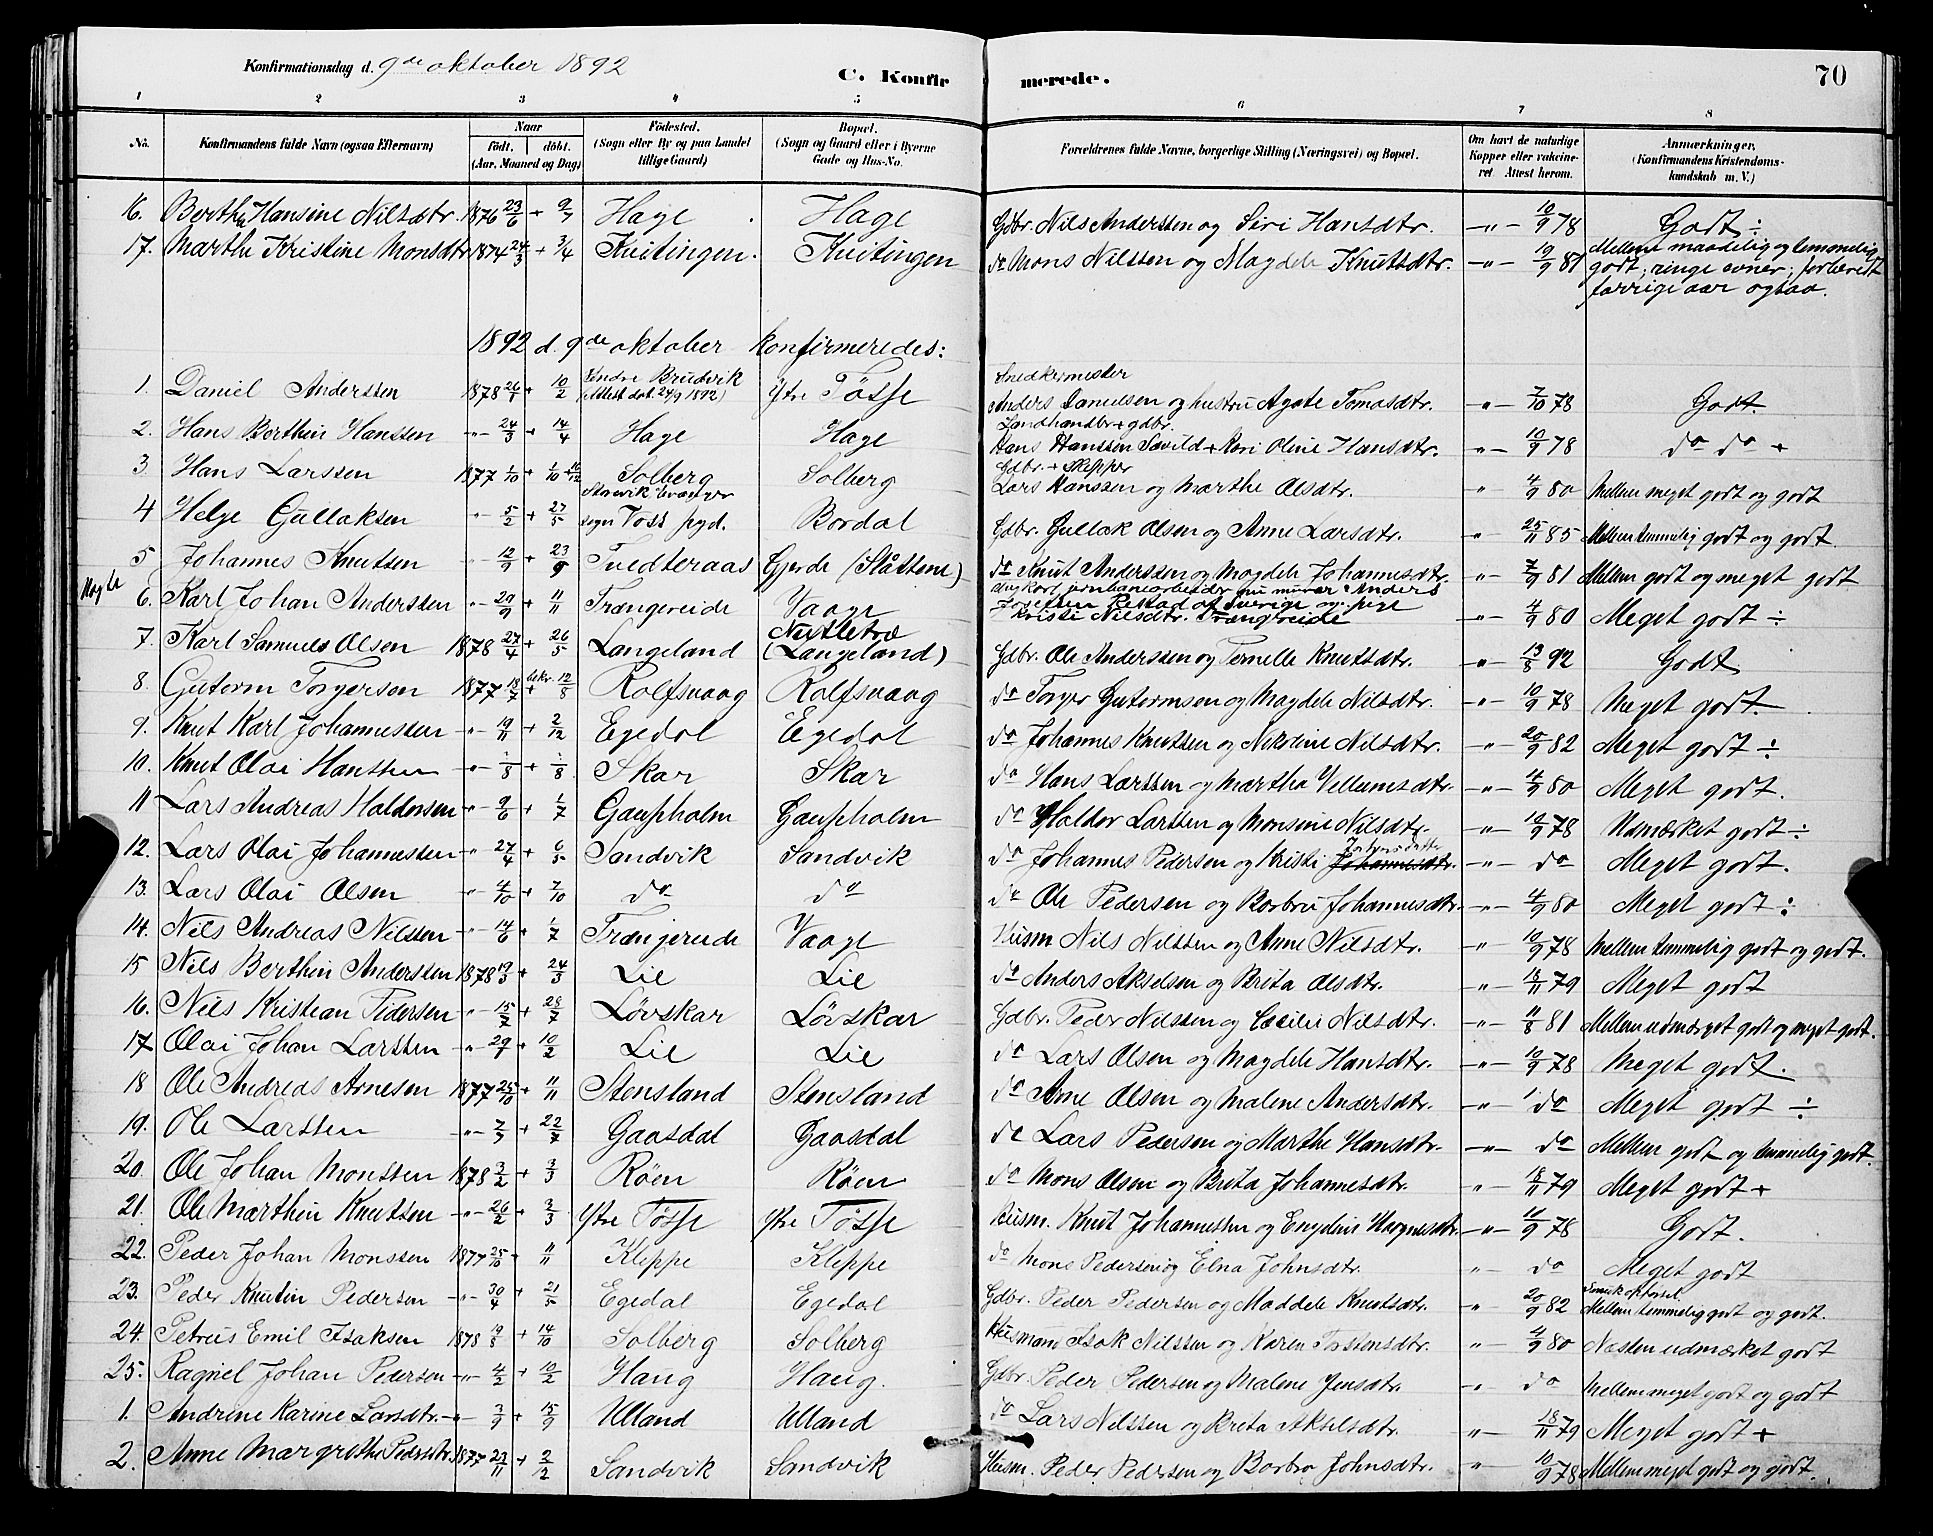 Konfirmationsdag d. 9de oktober 1892
C. Konfir merede. 70
1 2 3 4 5 6 7 8
No. Konfirmandens fulde Navn (ogsaa Efternavn) Naar födt. döbt. (Aar, Maaned og Dag) Födested. (Sogn eller By og paa Landet tillige Gaard) Bopæl. (Sogn og Gaard eller i Byerne Gade og Hus-No. Forældrenes fulde Navne, borgerlige Stilling (Næringsvei) og Bopæl. Om havt de naturlige Kopper eller vakcineret. Attest herom. Anmærkninger, (Konfirmandens Kristendomskundskab m. V.)
16. Bertha Hansine Nilsdtr. 1876 23/6 + 9/7 Hage Hage Gdbr. Nils Anderssen og Siri Hansdtr. -"- 10/9 78 Godt ÷
17. Marthe Kristine Monsdtr 1874 24/3 + 3/4 Kuitingen. Kuitingen do Mons Nilssen og Magdele Knutsdtr. -"- 19/9 81 Mellem maadelig og temmelig godt; ringe evner; forberedt forrige aar ogsaa.
1892 d. 9de oktober konfirmeredes:
1. Daniel Anderssen 1878 26/1 + 10/2 Söndre Brudvik (Attest dat. 24/9 1892) Ytre Tösse Snedkermester Anders Danielsen og hustru Agate Tomasdtr. -"- 7/10 78 Godt.
2. Hans Berthin Hanssen -"- 24/3 + 14/4 Hage Hage Landhandler + gdbr. Hans Hanssen Sævild + Kari Oline Hansdtr. -"- 10/9 78 do do +
3. Hans Larssen 1877 1/10 + 1/10 Solberg Solberg Gdbr. + Skipper Lars Hanssen og Marthe Olsdtr. " - 4/9 80 Mellem meget godt og godt
4 Helge Gullaksen - " 5/2 + 27/5 Evanger sogn Voss pgd. Bordal Gdbr. Gullak Olsen og Anne Larsdtr. " - 25/11 85 Mellem temmelig godt og godt
5 Johannes Knutsen - " 12/9 + 23/9 Tvedteraas Gjerde (Slåttene) do Knut Anderssen og Magdele Johannesdtr. " - 7/9 81 Mellem godt og meget godt
6. Karl Johan Anderssen - " 29/9 + 11/11 Trængereide Vaage jernbanearbeider nu murer Anders af Sverige og pige Kristi Nilsdtr. Trængereide -"- 4/9 80 Meget godt ÷
7. Karl Samuels Olsen 1878 27/4 + 26/5 Langeland (Langeland) Gdbr. Ole Anderssen og Pernelle Knutsdtr. -"- 13/8 92 Godt
8. Gutorm Torgersen 1877 18/7 + 12/8 Rolfsvaag Rolfsvaag do Torger Gutormsen og Magdele Nilsdtr. -"- 10/9 78 Meget godt.
9. Knut Karl Johannessen -"- 19/11 + 2/12 Egedal Egedal do Johannes Knutsen og Nikoline Nilsdtr. -"- 20/9 82 Meget godt ÷
10. Knut Olai Hanssen -"- /8 + /8 Skar Skar do Hans Larssen og Martha Vellumsdtr. -"- 4/9 80 Meget godt.
11 Lars Andreas Haldorsen -"- 9/6 + 1/7 Gaupholm Gaupholm do Haldor Larssen og Monsine Nilsdtr. -"- 10/9 78 Udmærket godt ÷
12. Lars Olai Johannessen - " 27/4 + 6/5 Sandvik Sandvik do Johannes Pedersen og Kristi Johannesdtr. -"- do Meget godt.
13. Lars Olai Olsen - " 4/10 + 7/10 do do do Ole Pedersen og Barbru Johannesdtr. -"- 4/9 80 Meget godt ÷
14. Nils Andreas Nilssen - " 14/6 + 1/7 Trængereide Vaage Husm Nils Nilssen og Anne Nilsdtr. -"- 10/9 78 Mellem temmelig godt og godt.
15 Nils Berthin Anderssen 1878 19/3 + 24/3 Lie Lie do Anders Akselsen og Brita Olsdtr. -"- 18/11 79 Meget godt
16. Nils Kristian Pedersen - " 15/7 + 28/7 Lövskar Lövskar Gdbr. Peder Nilssen og Cecilie Nilsdtr. -"- 11/8 81 Mellem udmærget godt og meget godt.
17 Olai Johan Larssen - " 29/1 + 10/2 Lie Lie do Lars Olsen og Magdele Hansdtr. -"- 10/9 78 Meget godt.
18 Ole Andreas Arnesen 1877 25/10 + 11/11 Stensland Stensland do Arne Olsen og Malene Andersdtr. -"- do Meget godt ÷
19. Ole Larssen -"- 7/7 + 22/7 Gaasdal Gaasdal do Lars Pedersen og Marthe Hansdtr. -"- do Mellem godt og temmelig godt.
20. Ole Johan Monssen 1878 3/2 + 3/3 Röen Röen do Mons Olsen og Brita Johannesdtr. " - 18/11 79 Meget godt +
21. Ole Marthin Knutsen -"- 26/2 + 3/3 Ytre Tösse Ytre Tösse Husm. Knut Johannessen og Engeline Magnesdtr. -"- 10/9 78 Godt.
22. Peder Johan Monssen 1877 25/10 + 11/11 Kleppe Kleppe do Mons Pedersen og Elna Johnsdtr. " - do Meget godt
23. Peder Knutin Pedersen -"- 30/4 + 21/5 Egedal Egedal Gdbr. Peder Pedersen og Maddele Knutsdtr. " - 20/9 82 Smuk opförsel. Mellem temmelig godt og godt.
24. Petrus Emil Isaksen 1878 19/8 + 14/10 Solberg Solberg Husmand Isak Nilssen og Karen Torstensdtr. " - 4/9 80 Næsten udmærket godt
25. Ragnel Johan Pedersen -"- 4/2 + 10/2 Haug Haug. Gdbr. Peder Pedersen og Malene Jensdtr. " - do Mellem meget godt og godt
1. Andrine Karine Larsdtr. -"- 3/9 + 15/9 Ulland Ulland do Lars Nilssen og Brita Akselsdtr. " - 18/11 79 Meget godt +
2. Anne Margrethe Pedersdtr. 1877 23/11 + 2/2 Sandvik Sandvik Husm. Peder Pedersen og Barbra Johnsdtr. " - 10/9 78 Mellem meget godt og godt.